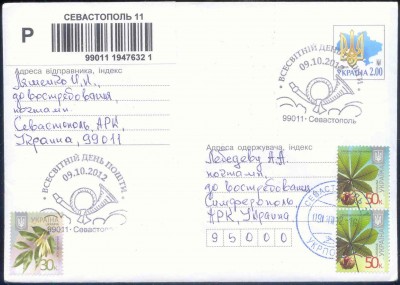 СЕВАСТОПОЛЬ 11
Р
99011 1947632 1
Адреса відправника, індекс
И.И.,
до востребования,
почтамт.
Севастополь, АРК,
Украина, 99011
ВСЕСВІТНІЙ ДЕНЬ ПОШТИ
09.10.2012
99011-Севастополь
УКРАЇНА 2.00
ВСЕСВІТНІЙ ДЕНЬ ПОШТИ
09.10.2012
99011-Севастополь
УКРАЇНА
30к
Адреса одержувача, індекс
Лебедеву А.А.
почтамт,
до востребования
Симферополь,
АРК, Украина
95000
СЕВАСТО
УКРПО
50к
50к